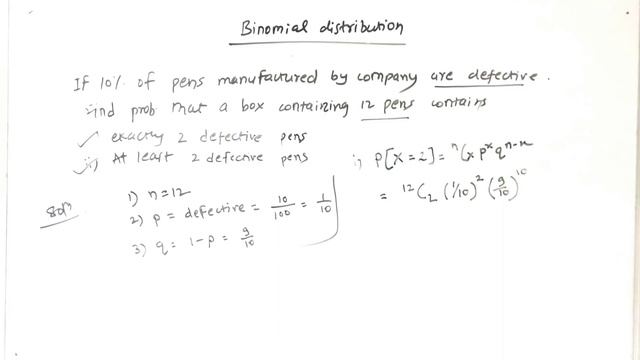 Binomial distribution
If 10% of pens manufactured by company are defective.
find prob that a box containing 12 pens contains
i) exactly 2 defective pens
ii) At least 2 defective pens
Solⁿ
1) n=12
2) p = defective = 10/100 = 1/10
3) q = 1-p = 9/10
i) P[X=2] = ⁿCₓ pˣ qⁿ⁻ˣ
= ¹²C₂ (1/10)² (9/10)¹⁰